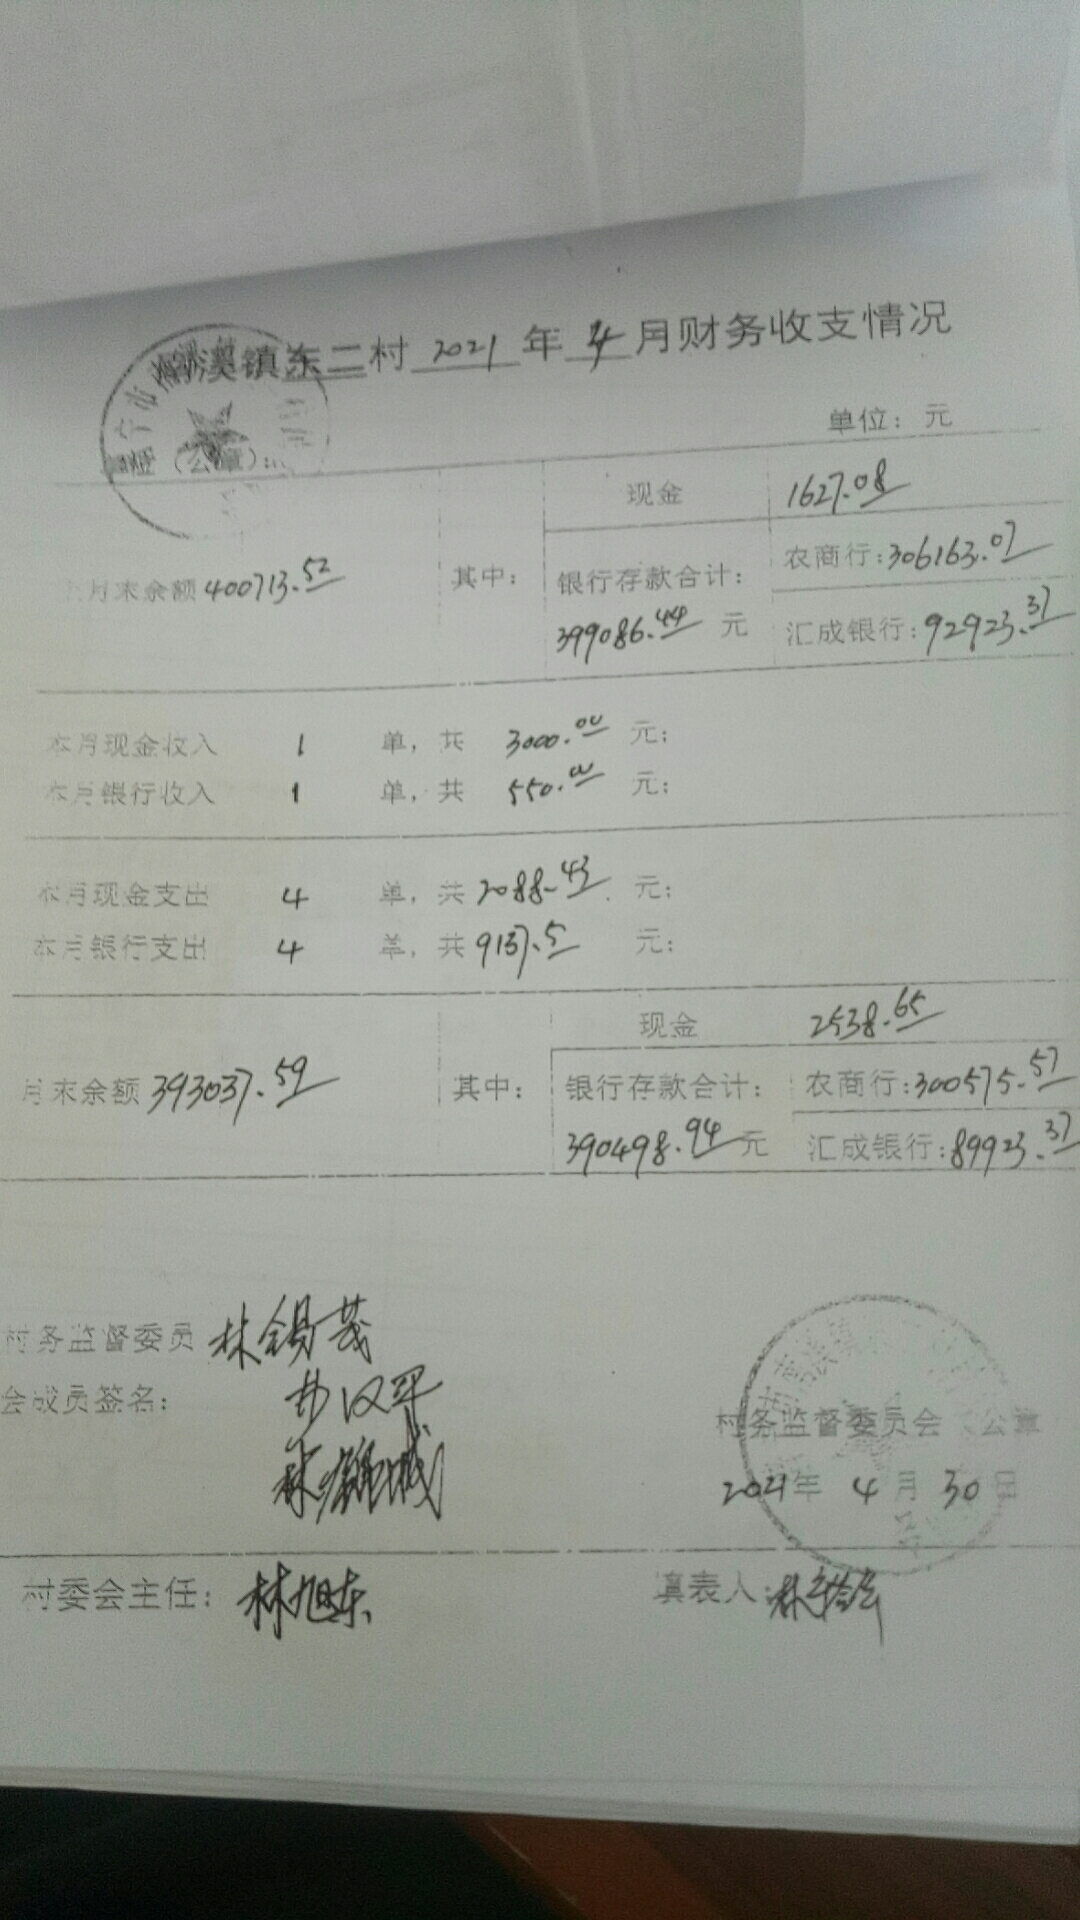 溪镇东二村 2021 年 4 月财务收支情况
(公章):
单位: 元
现金 1627.08
月末余额 400713.52 其中: 银行存款合计: 农商行: 306163.07
399086.44 元 汇成银行: 92923.37
本月现金收入 1 单, 共 3000.00 元;
本月银行收入 1 单, 共 550.00 元;
本月现金支出 4 单, 共 2088.43 元;
本月银行支出 4 单, 共 9137.5 元;
现金 2538.65
月末余额 393037.59 其中: 银行存款合计: 农商行: 300575.57
390498.94 元 汇成银行: 89923.37
村务监督委员 林锡茂
会成员签名:
村务监督委员会(公章
2021年 4 月 30 日
村委会主任: 林旭东 填表人: